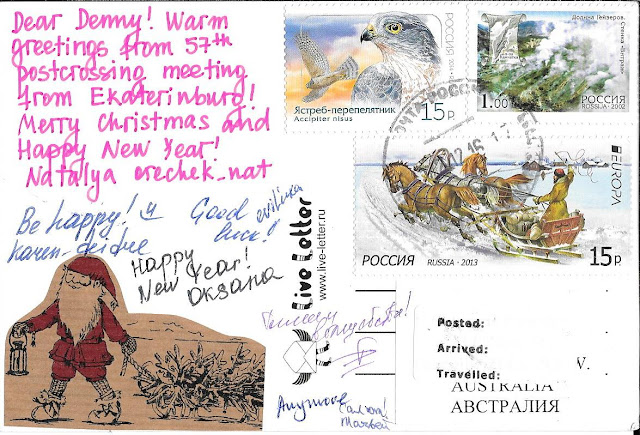 Dear Denny! Warm
greetings from 57th
postcrossing meeting
from Ekaterinburg!
Merry Christmas and
Happy New Year!
Natalya orechek_nat
Be happy!
Good
luck!
evilinca
karen-deidre
Happy
New Year!
Оксана
Live Letter
www.live-letter.ru
РОССИЯ
Ястреб-перепелятник
Accipiter nisus
15р
Долина Гейзеров.
1.00
РОССИЯ
ROSSIJA·2002
ПОЧТА РОССИИ
EUROPA
РОССИЯ
RUSSIA·2013
15р
Posted:
Arrived:
Travelled:
V.
AUSTRALIA
АВСТРАЛИЯ
Салют!
Матвей